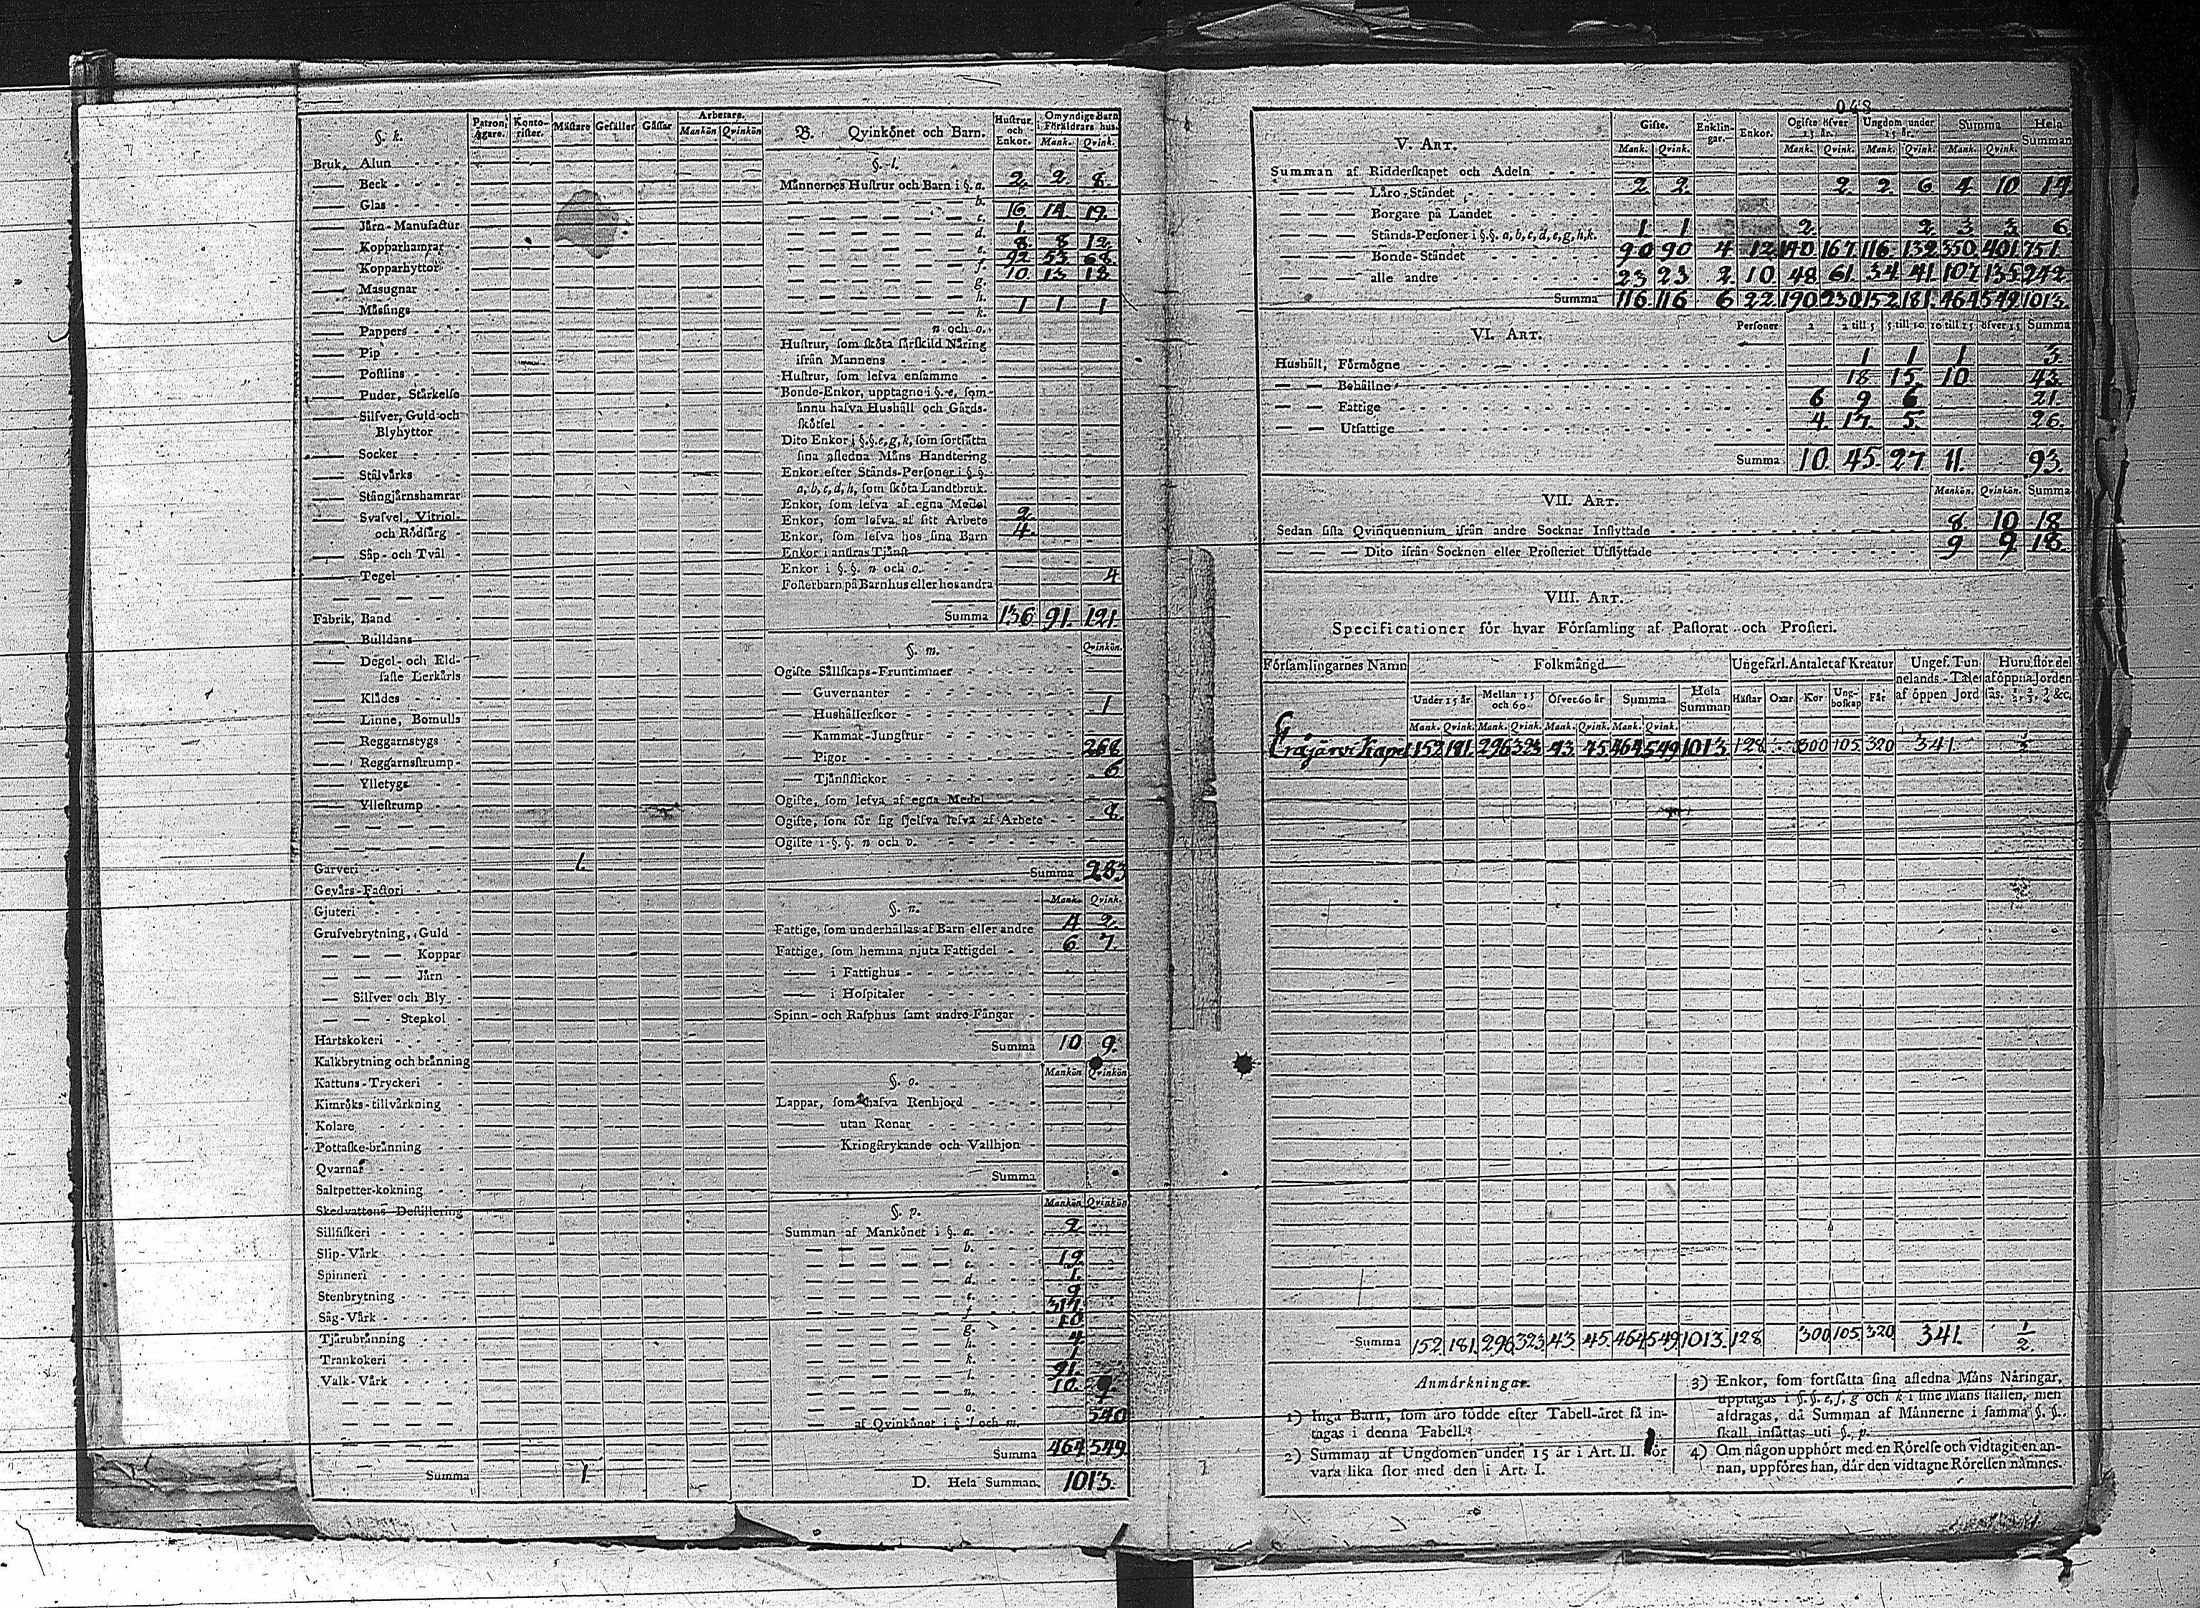 §. k.
Patron, Ägare.
Konto-rister.
Mästare
Gesäller
Gåssar
Arbetare.
Mankön
Qvinkön
Bruk, Alun
— Beck
— Glas
— Järn-Manufactur
— Kopparhamrar
— Kopparhyttor
— Masugnar
— Mässings
— Pappers
— Pip
— Postlins
— Puder, Stärkelse
— Silfver, Guld och
Blyhyttor
— Socker
— Stålvärks
— Stångjärnshamrar
— Svafvel, Vitriol-
och Rödfärg
— Såp- och Tvål
— Tegel
Fabrik, Band
— Bulldans
— Degel- och Eld-
faste Lerkärls
— Klädes
— Linne, Bomulls
— Reggarnstygs
— Reggarnsstrump
— Ylletygs
— Yllestrump
Garveri 1.
Gevärs-Factori
Gjuteri
Grufvebrytning, Guld
— — — Koppar
— — — Järn
— Silfver och Bly
— — Stenkol
Hartskokeri
Kalkbrytning och bränning
Kattuns-Tryckeri
Kimröks-tillvärkning
Kolare
Pottaske-bränning
Qvarnar
Saltpetter-kokning
Skedvattens-Destillering
Sillfiskeri
Slip-Värk
Spinneri
Stenbrytning
Såg-Värk
Tjärubränning
Trankokeri
Valk-Värk
Summa 1.
B. Qvinkönet och Barn.
Hustrur och Enkor.
Omyndige Barn i Föräldrars hus.
Mank. Qvink.
§. l.
Männernes Hustrur och Barn i §. a. 2. 2. 8.
b.
c. 16 14 19.
d. 1.
e. 8 8 12
f. 92 53 68
g. 10 13 18
h.
k. 1 1 1
n och o.
Hustrur, som sköta särskild Näring
ifrån Mannens
Hustrur, som lefva ensamme
Bonde-Enkor, upptagne i §. e, som
ännu hafva Hushåll och Gårds-
skötsel
Dito Enkor i §.§. e, g, k, som fortsätta
sina afledna Mäns Handtering
Enkor efter Stånds-Personer i §.§.
a, b, c, d, h, som sköta Landtbruk.
Enkor, som lefva af egna Medel
Enkor, som lefva af sitt Arbete 2.
Enkor, som lefva hos sina Barn 4.
Enkor i andras Tjänst
Enkor i §.§. n och o.
Fosterbarn på Barnhus eller hos andra 4
Summa 136 91. 121
§. m. Qvinkön.
Ogifte Sällskaps-Fruntimmer
— Guvernanter
— Hushållerskor 1
— Kammar-Jungfrur
— Pigor 268
— Tjänstflickor 6
Ogifte, som lefva af egna Medel
Ogifte, som för sig sjelfva lefva af Arbete 8.
Ogifte i §.§. n och o.
Summa 283
§. n. Mank. Qvink.
Fattige, som underhållas af Barn eller andre 4 2.
Fattige, som hemma njuta Fattigdel 6 7.
— i Fattighus
— i Hospitaler
Spinn- och Rasphus samt andre Fångar
Summa 10 9.
§. o. Mankön Qvinkön
Lappar, som hafva Renhjord
— utan Renar
— Kringstrykande och Vallhjon
Summa
§. p. Mankön Qvinkön
Summan af Mankönet i §. a. 2
b.
c. 19
d. 1.
e. 9
f. 317.
g. 10
h. 4
k. 1
l. 91.
n. 10. 9.
o.
af Qvinkönet i §. l och m. 540
Summa 464 549
D. Hela Summan. 1013.
048
V. Art.
Gifte. Enklin-gar. Enkor. Ogifte öfver 15 år. Ungdom under 15 år. Summa Hela Summan
Mank. Qvink. Mank. Qvink. Mank. Qvink. Mank. Qvink.
Summan af Ridderskapet och Adeln
— — — Läro-Ståndet 2 2. 2. 2 6 4 10 14
— — — Borgare på Landet
— — — Stånds-Personer i §.§. a, b, c, d, e, g, h, k. 1 1 2. 2 3 3 6
— — — Bonde-Ståndet 90 90 4 12 140 167 116 132 350 401 751.
— — — alle andre 23 23 2. 10 48 61. 34 41 107 135 242
Summa 116 116 6 22 190 230 152 181. 464 549 1013.
VI. Art.
Personer 2 2 till 5 5 till 10 10 till 15 öfver 15 Summa
Hushåll, Förmögne 1 1 1 3.
— — Behållne 18 15. 10 43.
— — Fattige 6 9 6 21.
— — Utfattige 4. 17. 5. 26.
Summa 10. 45. 27 11. 93.
VII. Art.
Mankön. Qvinkön. Summa
Sedan sista Qvinquennium ifrån andre Socknar Inflyttade 8. 10 18
— — — Dito ifrån Socknen eller Prosteriet Utflyttade 9 9 18.
VIII. Art.
Specificationer för hvar Församling af Pastorat och Prosteri.
Församlingarnes Namn Folkmängd Ungefärl. Antalet af Kreatur Ungef. Tunnelands-Talet af öppen Jord Huru stor del af öppna Jorden sås. ½, ⅔, ¾ &c.
Under 15 år. Mellan 15 och 60 Öfver 60 år Summa Hela Summan Hästar Oxar Kor Ung-boskap Får
Mank. Qvink. Mank. Qvink. Mank. Qvink. Mank. Qvink.
Eräjärvi Kapel 152 181. 296 323 43. 45. 464 549 1013. 128 300 105 320 341. ½
Summa 152 181. 296 323 43. 45. 464 549 1013. 128 300 105 320 341. ½.
Anmärkningar.
1) Inga Barn, som äro födde efter Tabell-året få in-
tagas i denna Tabell.
2) Summan af Ungdomen under 15 år i Art. II. bör
vara lika stor med den i Art. I.
3) Enkor, som fortsätta sina afledna Mäns Näringar,
upptagas i §.§. e, f, g och k i sine Mäns ställen, men
afdragas, då Summan af Männerne i samma §.§.
skall insättas uti §. p.
4) Om någon upphört med en Rörelse och vidtagit en an-
nan, uppföres han, där den vidtagne Rörelsen nämnes.